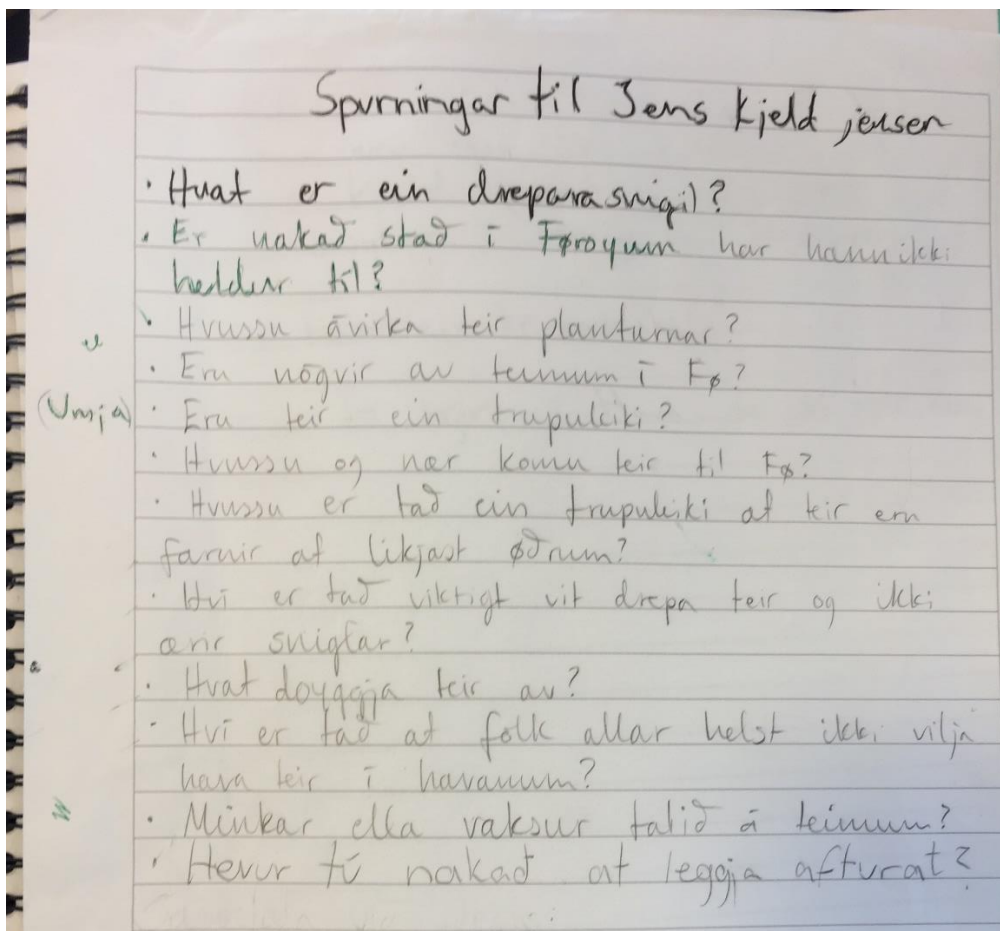 Spurningar til Jens Kjeld jensen
· Hvat er ein dreparasnigil?
· Er nakað stað í Føroyum har hann ikki
heldur til?
· Hvussu ávirka teir planturnar?
· Eru nógvir av teimum í Fø?
(Umja) · Eru teir ein trupulleiki?
· Hvussu og nær komu teir til Fø?
· Hvussu er tað ein trupulleiki at teir eru
farnir at líkjast øðrum?
· Hví er tað viktigt vit drepa teir og ikki
ørir sniglar?
· Hvat doyggja teir av?
· Hví er tað at fólk allar helst ikki vilja
hava teir í havanum?
· Minkar ella vaksur talið á teimum?
· Hevur tú nakað at leggja afturat?